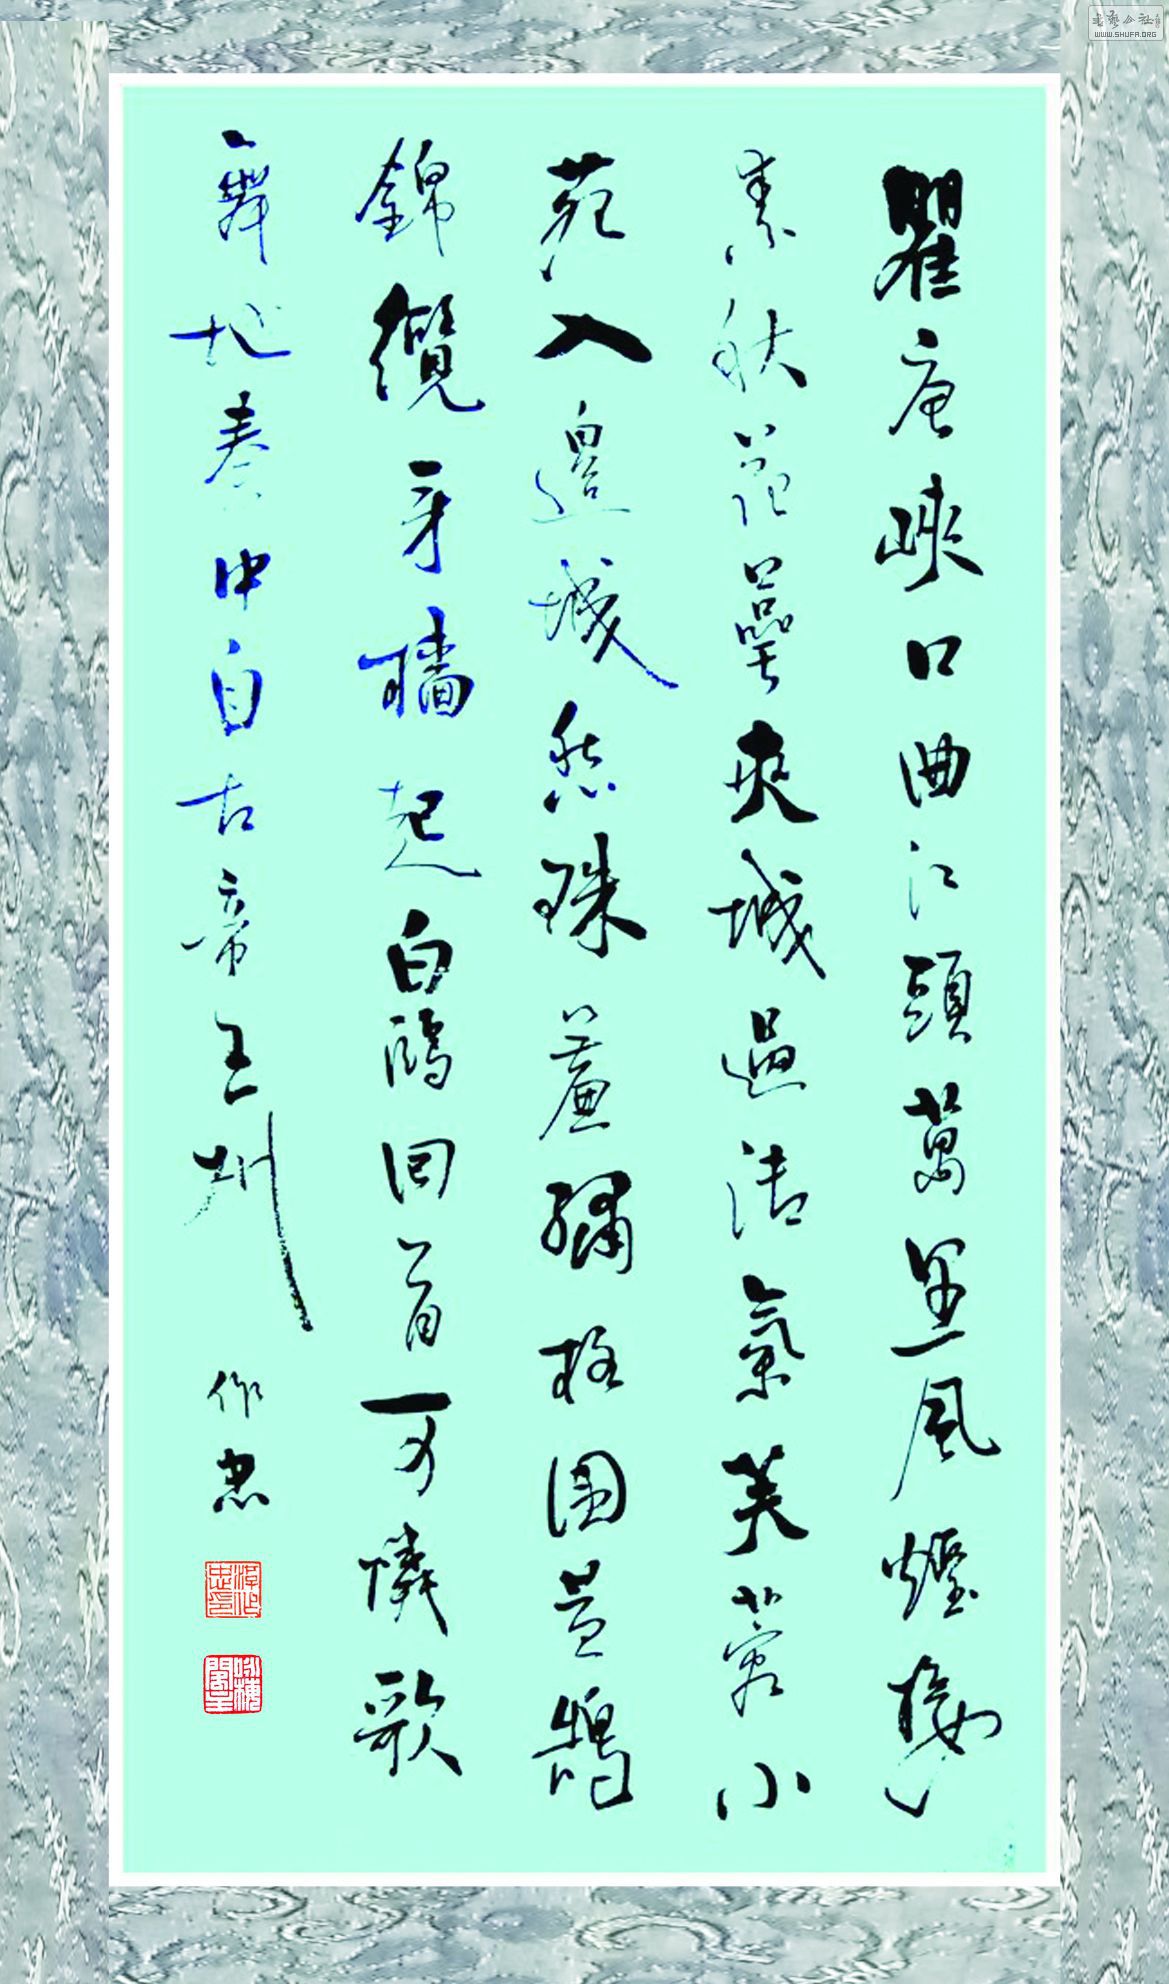 瞿唐峽口曲江頭萬里風煙接
素秋花萼夾城通御氣芙蓉小
苑入邊城愁珠簾繡柱圍黃鵠
錦纜牙檣起白鷗回首可憐歌
舞地秦中自古帝王州 作忠
书艺公社
WWW.SHUFA.ORG